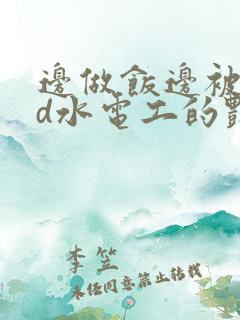 邊做飯邊被
d水電工的
李笠
未經同意禁止轉載